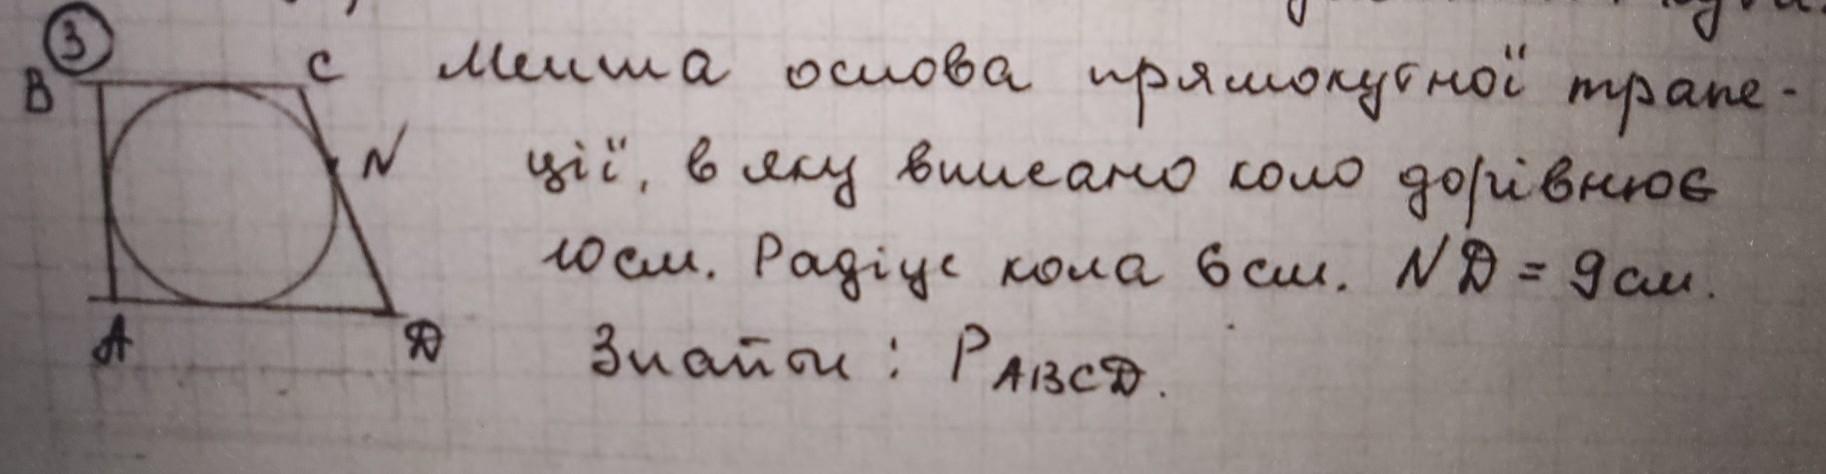 3
B C Менша основа прямокутної трапе-
N ції, в яку вписано коло дорівнює
10 см. Радіус кола 6 см. ND = 9 см.
A D Знайти: P ABCD.